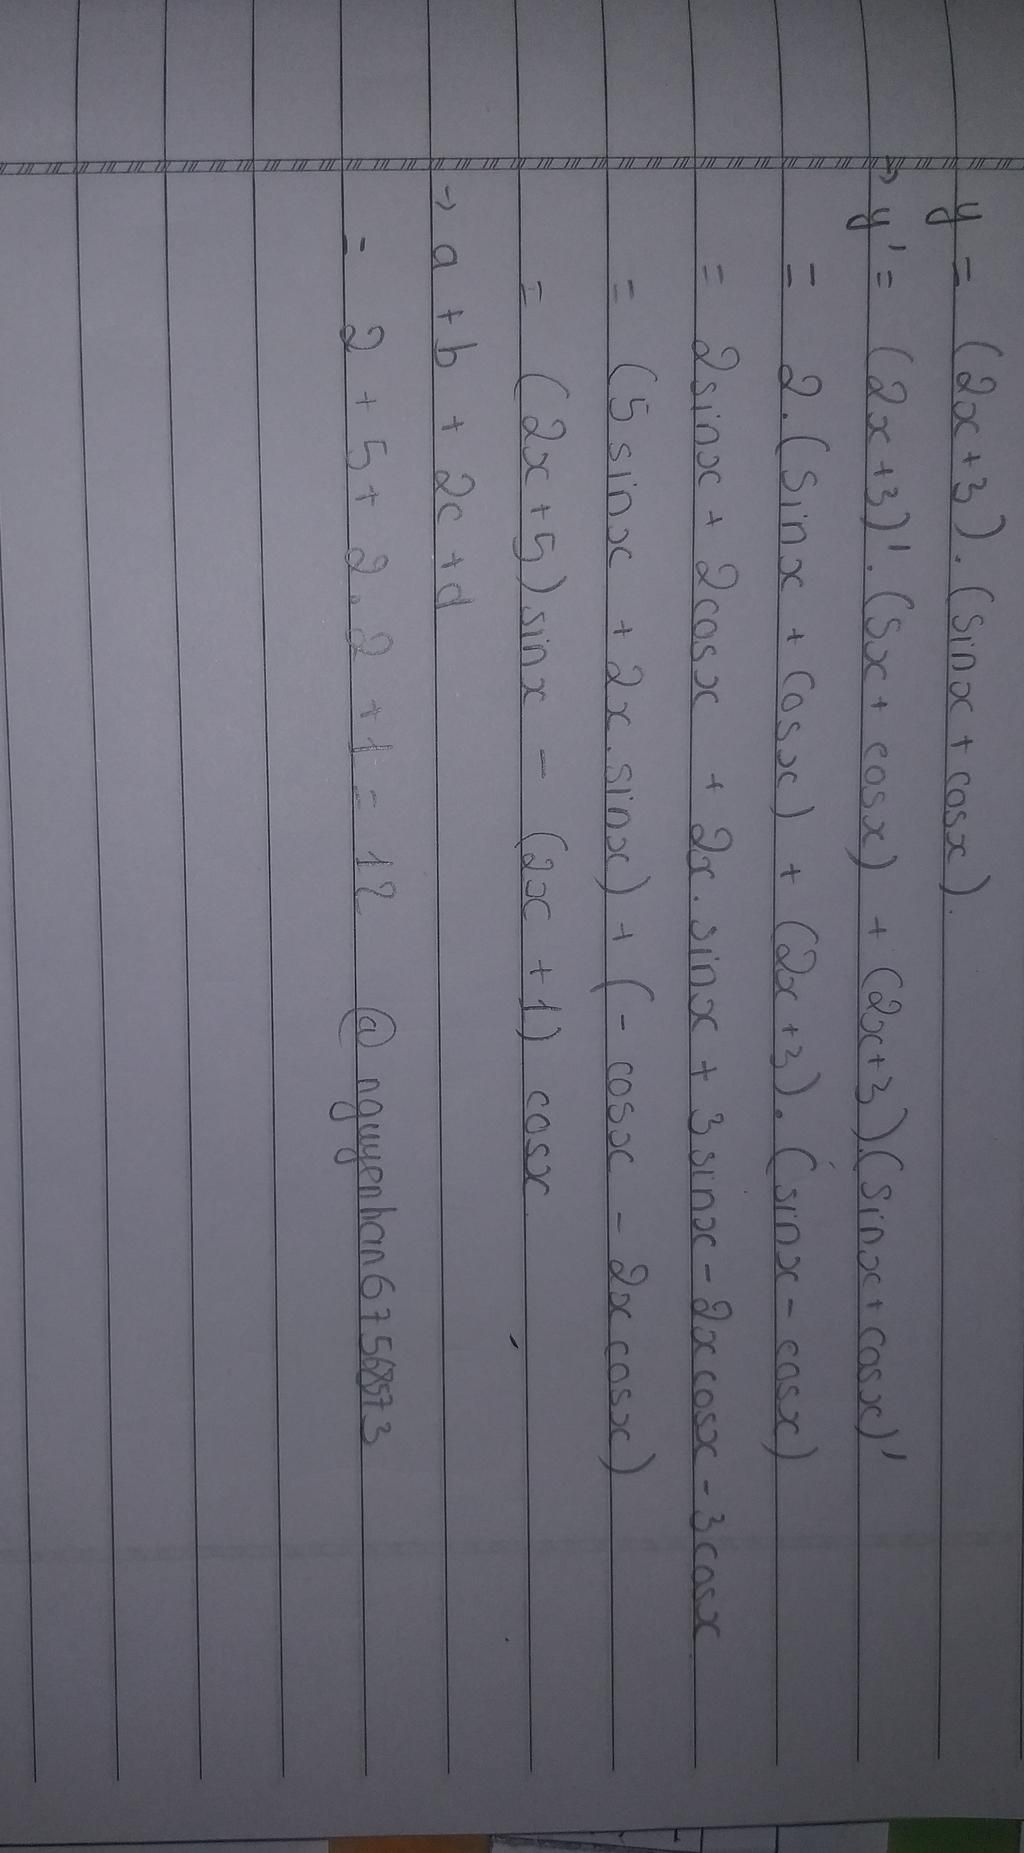 y = (2x+3).(sinx+cosx).
→ y' = (2x+3)'.(sx+cosx) + (2x+3).(sinx+cosx)'
= 2.(sinx + cosx) + (2x+3).(sinx - cosx)
= 2sinx + 2cosx + 2x.sinx + 3sinx - 2xcosx - 3cosx
= (5sinx + 2x.sinx) + (- cosx - 2xcosx)
= (2x+5)sinx - (2x+1) cosx
→ a + b + 2c + d
= 2 + 5 + 2.2 + 1 = 12 @nguyenhan67568573